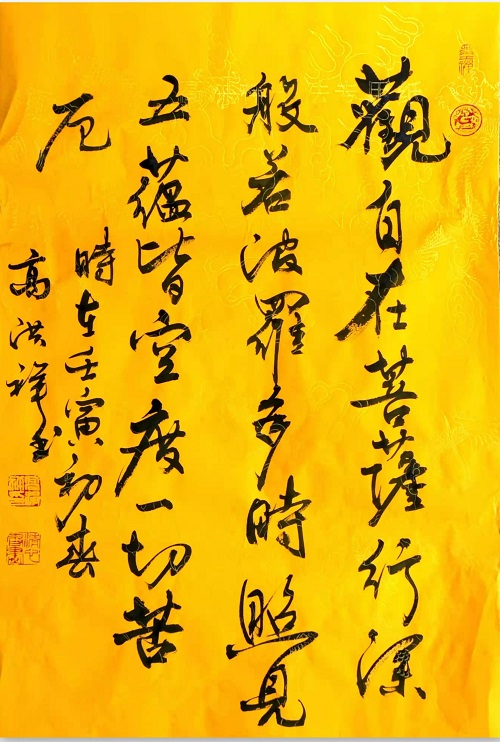 觀自在菩薩行深
般若波羅多時照見
五蘊皆空度一切苦
厄
時在壬寅初春
高洪祥書